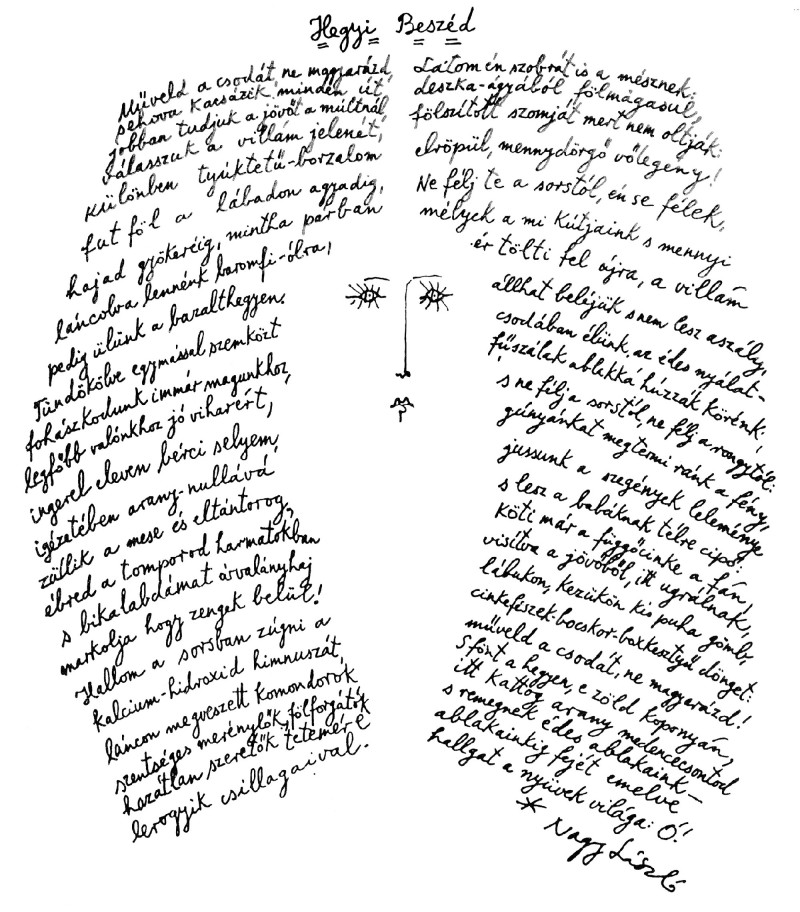 Hegyi Beszéd
Műveld a csodát, ne magyarázd,
sehova kacsázik minden út,
jobban tudjuk a jövőt a múltnál
válasszuk a villám jelenét,
különben tyúktetű-borzalom
fut föl a lábadon agyadig,
hajad gyökeréig, mintha párban
láncolva lennénk baromfi-ólra,
pedig ülünk a bazalthegyen.
Tündökölve egymással szemközt
fohászkodunk immár magunkhoz,
legfőbb valónkhoz jó viharért,
ingerel eleven bérci selyem,
igézetében arany-nullává
züllik a mese és eltántorog,
ébred a tomporod harmatokban
s bikalabdámat árvalányhaj
markolja hogy zengek belül!
Hallom a sorsban zúgni a
kalcium-hidroxid himnuszát,
láncon megveszett komondorok
szentséges merénylők, fölforgatók
hazátlan szeretők tetemére
lerogyik csillagaival.
Látom én szobrát is a mésznek:
deszka-ágyából fölmagasul,
fölszított szomját mert nem oltják:
elröpül, mennydörgő vőlegény!
Ne félj te a sorstól, én se félek,
mélyek a mi kútjaink s mennyi
ér tölti fel újra, a villám
állhat beléjük s nem lesz aszály,
csodában élünk, az édes nyálat-
fűszálak ablakká húzzák körénk,
s ne félj a sorstól, ne félj a rongytól:
gúnyánkat megtermi ránk a fény,
jussunk a szegények leleménye
s lesz a babáknak télre cipő:
köti már a függőcinke a fán,
visítva a jövőből, itt ugrálnak,
lábukon, kezükön kis puha gömb,
cinkefészek-bocskor-boxkesztyű dönget:
műveld a csodát, ne magyarázd!
S fönt a hegyen, e zöld koponyán,
itt kattog arany medencecsontod
s remegnek édes ablakaink –
ablakainkig fejét emelve
hallgat a nyüvek világa: Ó!
* Nagy László